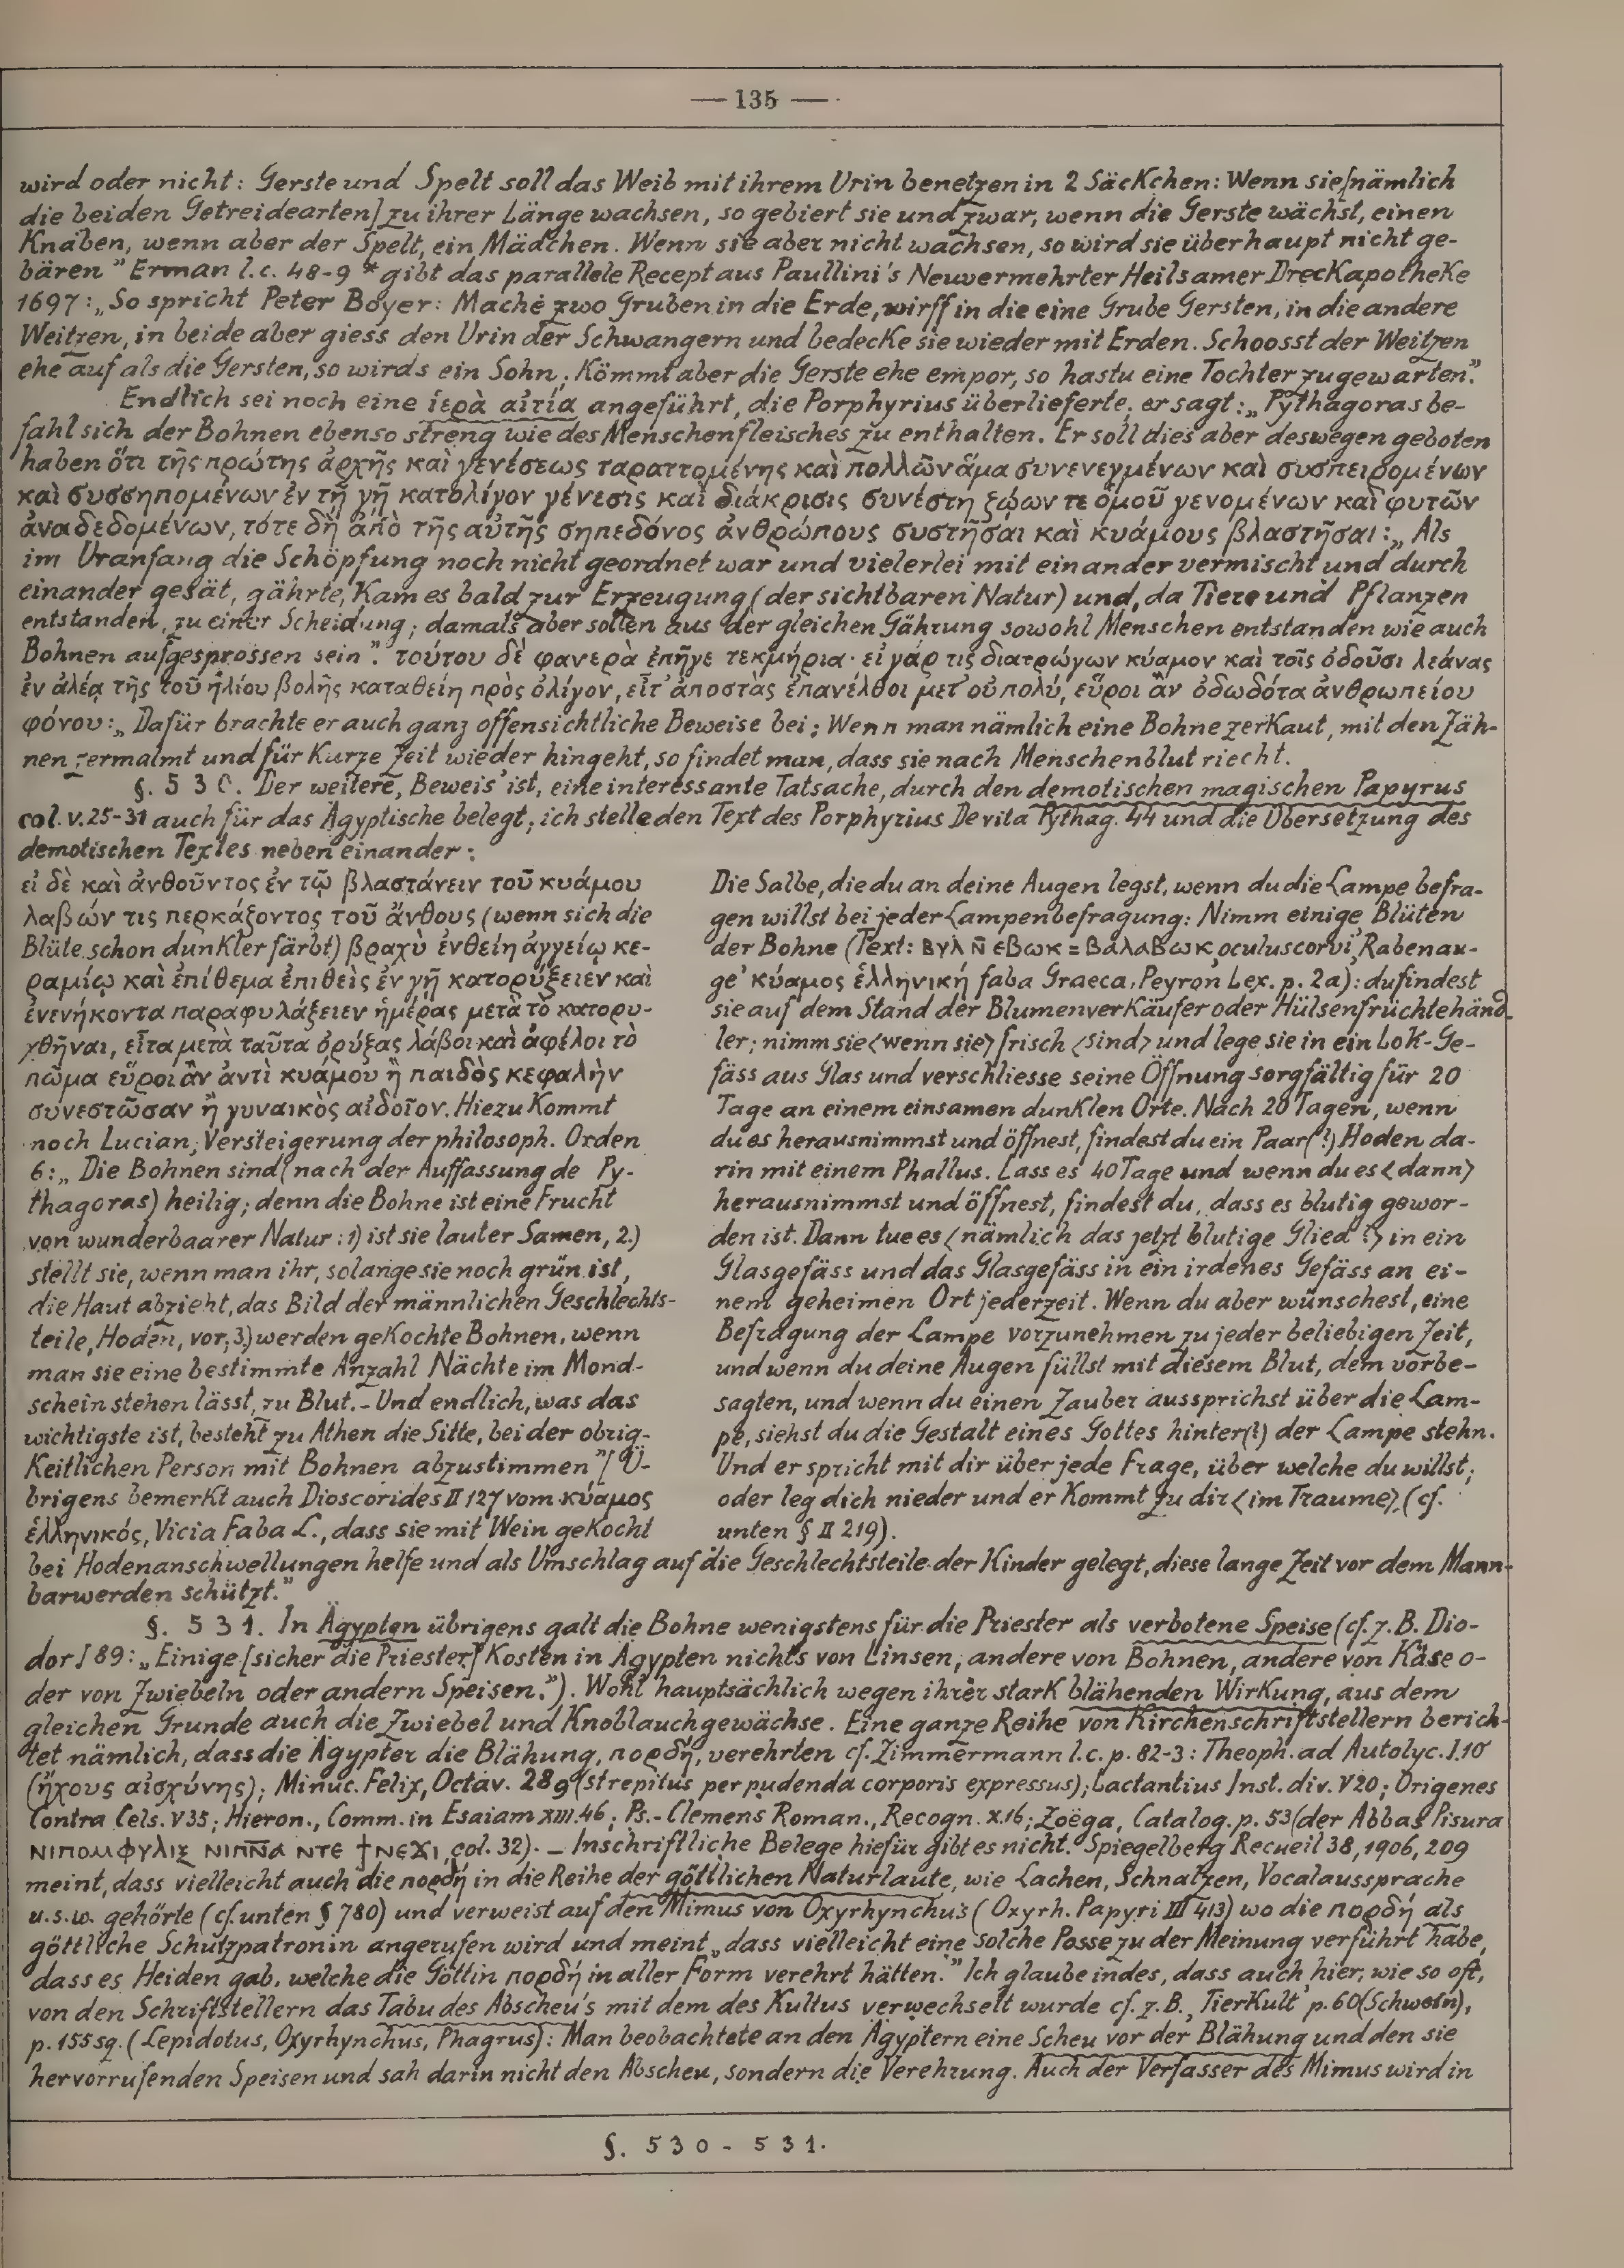 — 135 —
wird oder nicht: Gerste und Spelt soll das Weib mit ihrem Urin benetzen in 2 Säckchen: Wenn sie [nämlich
die beiden Getreidearten] zu ihrer Länge wachsen, so gebiert sie und zwar, wenn die Gerste wächst, einen
Knaben, wenn aber der Spelt, ein Mädchen. Wenn sie aber nicht wachsen, so wird sie überhaupt nicht ge-
bären" Erman l.c. 48-9 * gibt das parallele Recept aus Paullini's Neuvermehrter Heilsamer Dreckapotheke
1697: „So spricht Peter Boyer: Mache zwo Gruben in die Erde, wirff in die eine Grube Gersten, in die andere
Weitzen, in beide aber giess den Urin der Schwangern und bedecke sie wieder mit Erden. Schoosst der Weitzen
ehe auf als die Gersten, so wirds ein Sohn; Kömmt aber die Gerste ehe empor, so hastu eine Tochter zugewarten."
Endlich sei noch eine ἱερὰ αἰτία angeführt, die Porphyrius überlieferte; er sagt: „Pythagoras be-
fahl sich der Bohnen ebenso streng wie des Menschenfleisches zu enthalten. Er soll dies aber deswegen geboten
haben ὅτι τῆς πρώτης ἀρχῆς καὶ γενέσεως ταραττομένης καὶ πολλῶν ἅμα συνενεγμένων καὶ συσπειρομένων
καὶ συσσηπομένων ἐν τῇ γῇ κατολίγον γένεσις καὶ διάκρισις συνέστη ζῴων τε ὁμοῦ γενομένων καὶ φυτῶν
ἀναδεδομένων, τότε δὴ ἀπὸ τῆς αὐτῆς σηπεδόνος ἀνθρώπους συστῆσαι καὶ κυάμους βλαστῆσαι: „Als
im Uranfang die Schöpfung noch nicht geordnet war und vielerlei mit einander vermischt und durch
einander gesät, gährte, Kam es bald zur Erzeugung (der sichtbaren Natur) und, da Tiere und Pflanzen
entstanden, zu einer Scheidung; damals aber sollen aus der gleichen Gährung sowohl Menschen entstanden wie auch
Bohnen aufgesprossen sein". τούτου δὲ φανερὰ ἐπῆγε τεκμήρια· εἰ γάρ τις διατρώγων κύαμον καὶ τοῖς ὀδοῦσι λεάνας
ἐν ἀλέᾳ τῆς τοῦ ἡλίου βολῆς καταθείη πρὸς ὀλίγον, εἶτ' ἀποστὰς ἐπανέλθοι μετ' οὐ πολύ, εὕροι ἂν ὀδωδότα ἀνθρωπείου
φόνου: „Dafür brachte er auch ganz offensichtliche Beweise bei; Wenn man nämlich eine Bohne zerkaut, mit den Zäh-
nen zermalmt und für Kurze Zeit wieder hingeht, so findet man, dass sie nach Menschenblut riecht.
§. 530. Der weitere, Beweis' ist, eine interessante Tatsache, durch den demotischen magischen Papyrus
col. v. 25-31 auch für das Ägyptische belegt; ich stelle den Text des Porphyrius De vita Pythag. 44 und die Übersetzung des
demotischen Textes neben einander:
εἰ δὲ καὶ ἀνθοῦντος ἐν τῷ βλαστάνειν τοῦ κυάμου
λαβών τις περκάζοντος τοῦ ἄνθους (wenn sich die
Blüte schon dunkler färbt) βραχὺ ἐνθείη ἀγγείῳ κε-
ραμίῳ καὶ ἐπίθεμα ἐπιθεὶς ἐν γῇ κατορύξειεν καὶ
ἐνενήκοντα παραφυλάξειεν ἡμέρας μετὰ τὸ κατορυ-
χθῆναι, εἶτα μετὰ ταῦτα ὀρύξας λάβοι καὶ ἀφέλοι τὸ
πῶμα εὕροι ἂν ἀντὶ κυάμου ἢ παιδὸς κεφαλὴν
συνεστῶσαν ἢ γυναικὸς αἰδοῖον. Hiezu Kommt
noch Lucian, Versteigerung der philosoph. Orden
6: „Die Bohnen sind (nach der Auffassung de Py-
thagoras) heilig; denn die Bohne ist eine Frucht
von wunderbaarer Natur: 1) ist sie lauter Samen, 2.)
stellt sie, wenn man ihr, solange sie noch grün ist,
die Haut abzieht, das Bild der männlichen Geschlechts-
teile, Hoden, vor; 3.) werden gekochte Bohnen, wenn
man sie eine bestimmte Anzahl Nächte im Mond-
schein stehen lässt, zu Blut. - Und endlich, was das
wichtigste ist, besteht zu Athen die Sitte, bei der obrig-
Keitlichen Person mit Bohnen abzustimmen" [Ü-
brigens bemerkt auch Dioscorides II 127 vom κύαμος
ἑλληνικός, Vicia Faba L., dass sie mit Wein gekocht
Die Salbe, die du an deine Augen legst, wenn du die Lampe befra-
gen willst bei jeder Lampenbefragung: Nimm einige Blüten
der Bohne (Text: ⲃⲩⲗ ⲛ̄ ⲉⲃⲱⲕ = ⲃⲁⲗⲁⲃⲱⲕ, oculus corvi, Rabenau-
ge' κύαμος ἑλληνική faba Graeca, Peyron Lex. p. 2a): du findest
sie auf dem Stand der Blumenverkäufer oder Hülsenfrüchtehänd-
ler; nimm sie <wenn sie> frisch <sind> und lege sie in ein Lok-Ge-
fäss aus Glas und verschliesse seine Öffnung sorgfältig für 20
Tage an einem einsamen dunklen Orte. Nach 20 Tagen, wenn
du es herausnimmst und öffnest, findest du ein Paar (?) Hoden da-
rin mit einem Phallus. Lass es 40 Tage und wenn du es <dann>
herausnimmst und öffnest, findest du, dass es blutig gewor-
den ist. Dann tue es <nämlich das jetzt blutige Glied ?> in ein
Glasgefäss und das Glasgefäss in ein irdenes Gefäss an ei-
nem geheimen Ort jederzeit. Wenn du aber wünschest, eine
Befragung der Lampe vorzunehmen zu jeder beliebigen Zeit,
und wenn du deine Augen füllst mit diesem Blut, dem vorbe-
sagten, und wenn du einen Zauber aussprichst über die Lam-
pe, siehst du die Gestalt eines Gottes hinter (?) der Lampe stehn.
Und er spricht mit dir über jede Frage, über welche du willst;
oder leg dich nieder und er Kommt zu dir <im Traume>, (cf.
unten § II 219).
bei Hodenanschwellungen helfe und als Umschlag auf die Geschlechtsteile der Kinder gelegt, diese lange Zeit vor dem Mann-
barwerden schützt."
§. 531. In Ägypten übrigens galt die Bohne wenigstens für die Priester als verbotene Speise (cf. z. B. Dio-
dor I 89: „Einige [sicher die Priester] Kosten in Ägypten nichts von Linsen, andere von Bohnen, andere von Käse o-
der von Zwiebeln oder andern Speisen."). Wohl hauptsächlich wegen ihrer stark blähenden Wirkung, aus dem
gleichen Grunde auch die Zwiebel und Knoblauchgewächse. Eine ganze Reihe von Kirchenschriftstellern berich-
tet nämlich, dass die Ägypter die Blähung, πορδή, verehrten cf. Zimmermann l.c. p. 82-3: Theoph. ad Autolyc. I.10
(ἤχους αἰσχύνης); Minuc. Felix, Octav. 28 9 (strepitus per pudenda corporis expressus); Lactantius Inst. div. V 20; Origenes
Contra Cels. V 35; Hieron., Comm. in Esaiam XIII. 46; Ps.-Clemens Roman., Recogn. X. 16; Zoëga, Catalog. p. 53 (der Abbas Pisura
col. 32). – Inschriftliche Belege hiefür gibt es nicht. Spiegelberg Recueil 38, 1906, 209
meint, dass vielleicht auch die πορδή in die Reihe der göttlichen Naturlaute, wie Lachen, Schnalzen, Vocalaussprache
u.s.w. gehörte (cf. unten § 780) und verweist auf den Mimus von Oxyrhynchus (Oxyrh. Papyri III 413) wo die πορδή als
göttliche Schutzpatronin angerufen wird und meint „dass vielleicht eine solche Posse zu der Meinung verführt habe,
dass es Heiden gab, welche die Göttin πορδή in aller Form verehrt hätten." Ich glaube indes, dass auch hier, wie so oft,
von den Schriftstellern das Tabu des Abscheu's mit dem des Kultus verwechselt wurde cf. z. B. ‚Tierkult' p. 60 (Schwein),
p. 155 sq. (Lepidotus, Oxyrhynchus, Phagrus): Man beobachtete an den Ägyptern eine Scheu vor der Blähung und den sie
hervorrufenden Speisen und sah darin nicht den Abscheu, sondern die Verehrung. Auch der Verfasser des Mimus wird in
§. 530 - 531.